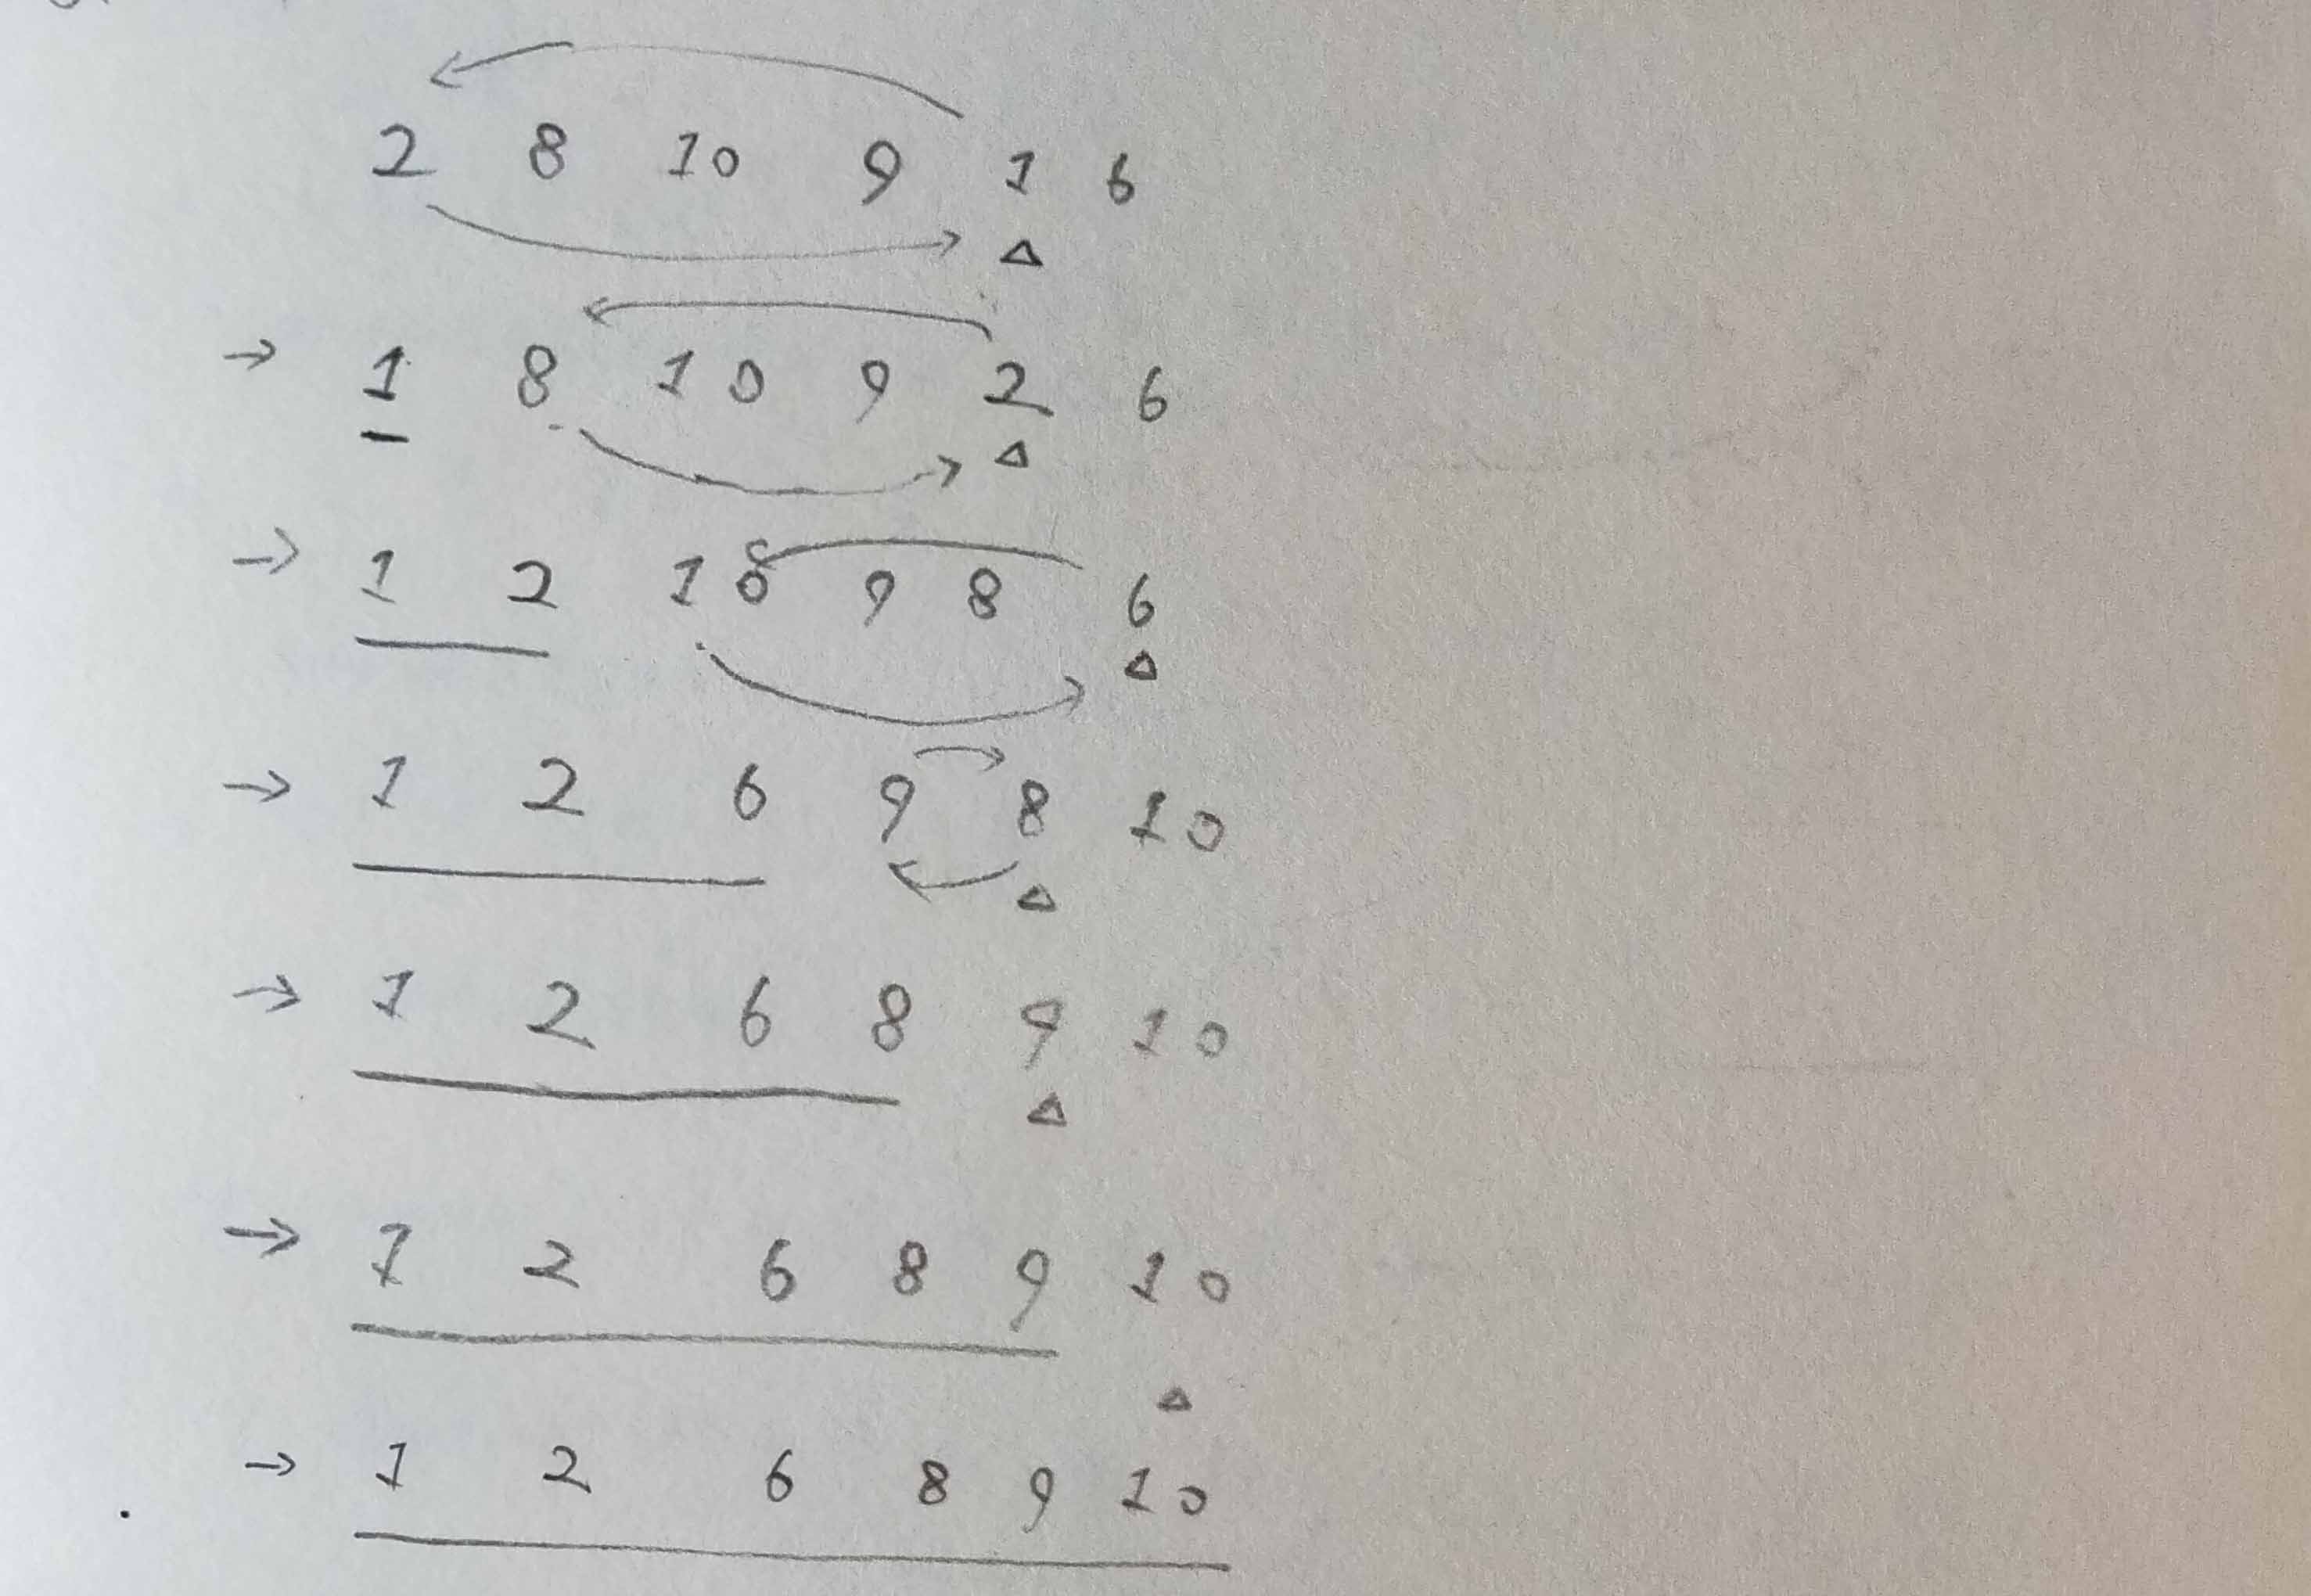 2 8 10 9 1 6
→ 1 8 10 9 2 6
→ 1 2 10 9 8 6
→ 1 2 6 9 8 10
→ 1 2 6 8 9 10
→ 1 2 6 8 9 10
→ 1 2 6 8 9 10